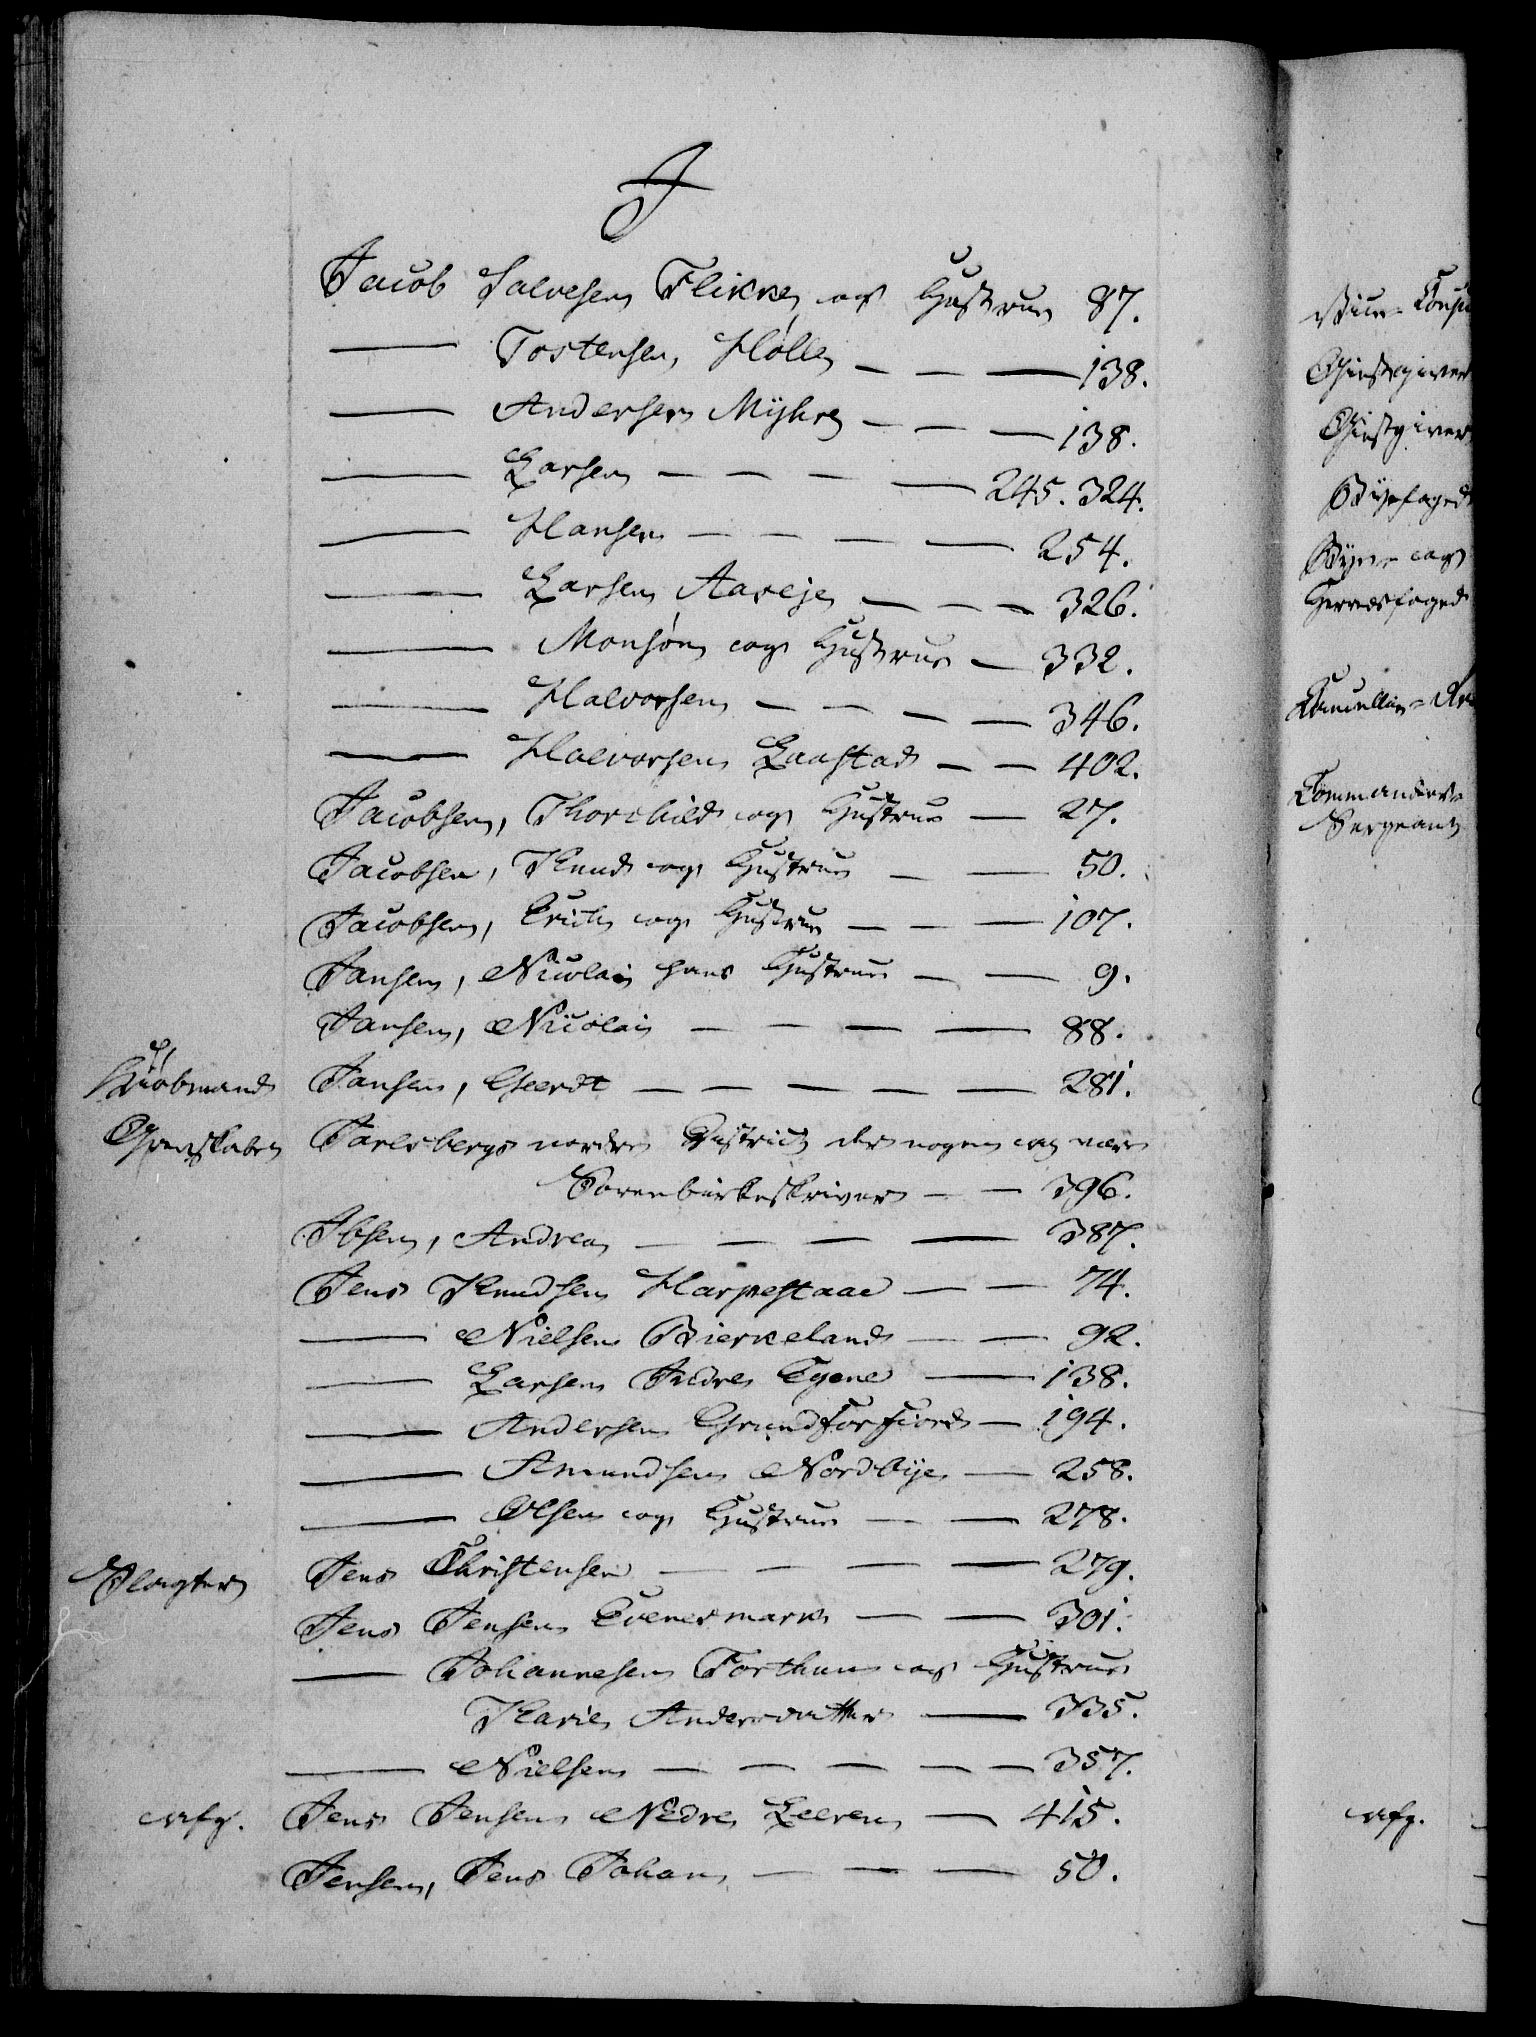 J
Jacob Salvesen Flikke og Hustrue 87.
— Tostensen Holle — — — 138.
— Andersen Myhre — — — 138.
— Larsen — — — — 245. 324.
— Hansen — — — — 254.
— Larsen Aareje — — — 326.
— Monsøn og Hustrue — 332.
— Halvorsen — — — — 346.
— Halvorsen Laastad — — 402.
Jacobsen, Thorchild og Hustrue — 27.
Jacobsen, Knud og Hustrue — — 50.
Jacobsen, Erich og Hustrue — — — 107.
Jansen, Nicolai hans Hustrue — — 9.
Jansen, Nicolai — — — — 88.
Kiøbmand Jansen, Geerdt — — — — — 281.
Grevskabet Jarlsbergs nordre District der nogen og være
Sorenbirkeskriver — — 396.
Ibsen, Andrea — — — — 387.
Jens Knudsen Harpestaae — — 74.
— Nielsen Birkeland — — 92.
— Larsen Indre Egene — 138.
— Andersen Grundforfiord — 194.
— Amundsen Nordbye — 258.
— Olsen og Hustrue — — 278.
Slagter Jens Christensen — — — — 279.
Jens Jensen Evenesmark — — 301.
— Johannesen Forthun og Hustrue
Karie Andersdatter — 335.
— Nielsen — — — — — 357.
afg. Jens Jensen Nedre Leeren — 415.
Jensen, Jens Johan — — — 50.
Vice-Consul
Giestgiver
Giestgiver
Byefoged
Bye- og
Herredsfoged
Cancellie-
Commandeur
Sergeant
afg.